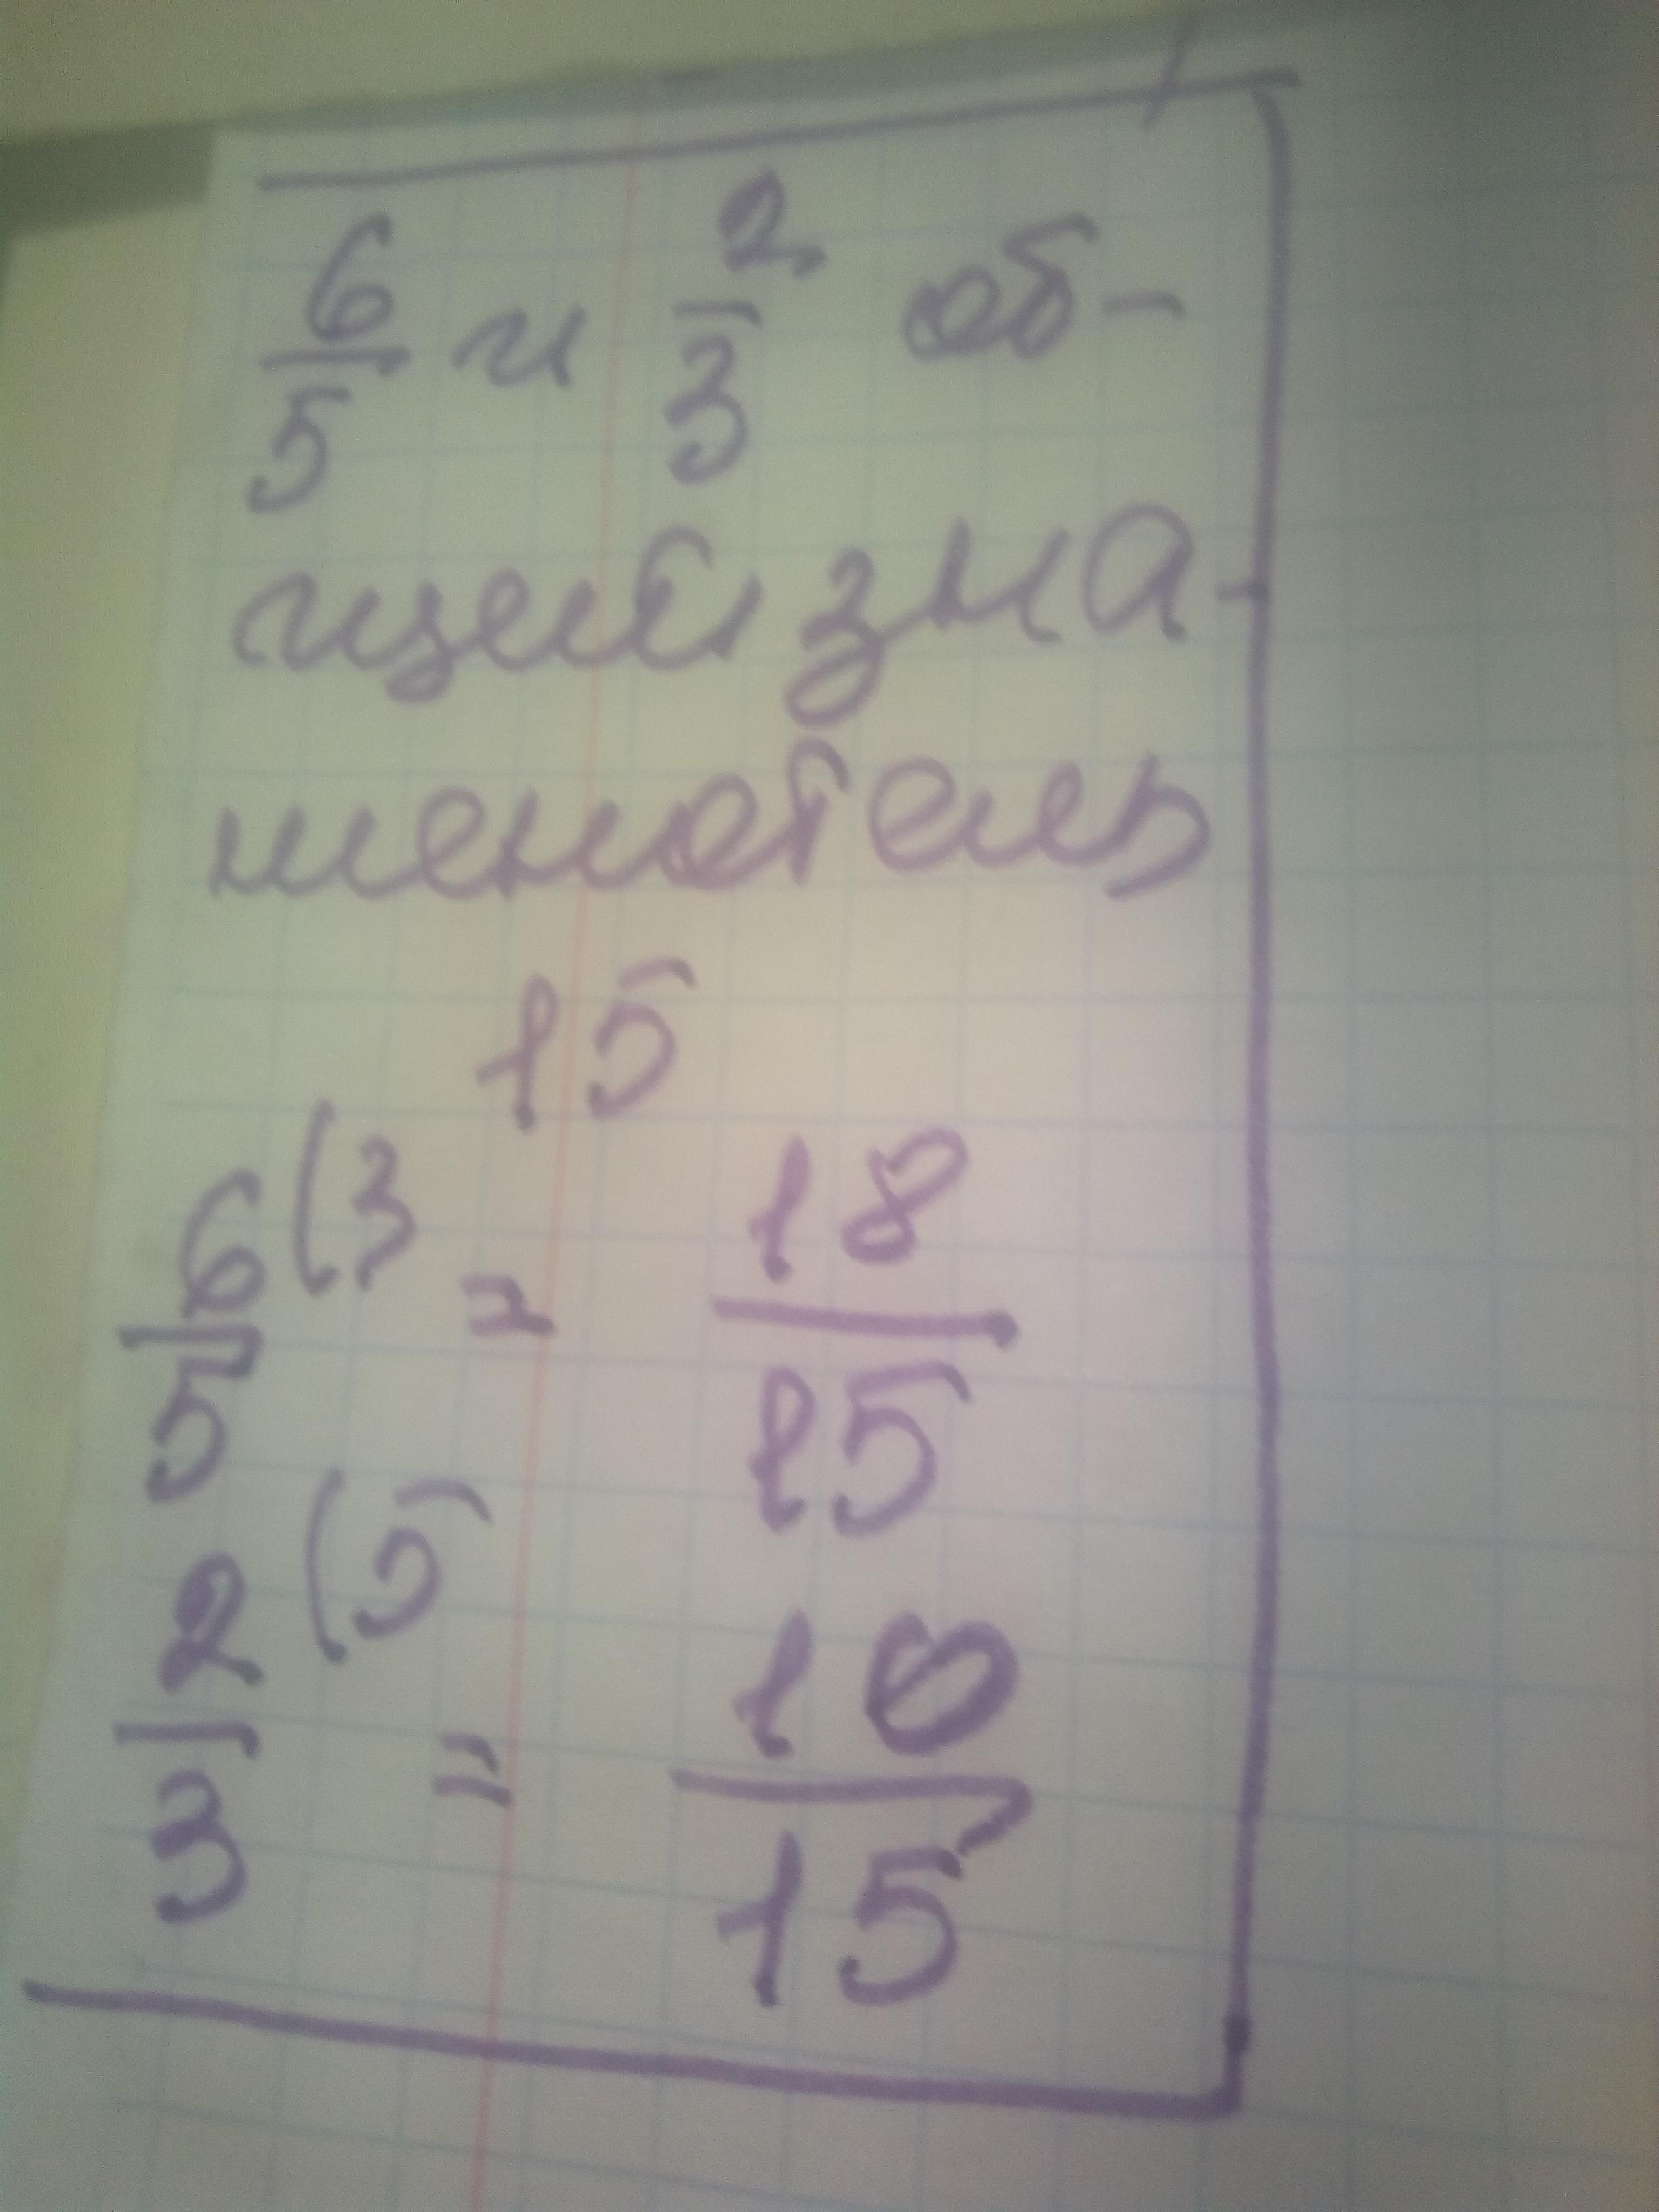 6/5 и 2/3 об-
щий зна-
менатель
15
6/5 (3 = 18/15
2/3 (5 = 10/15